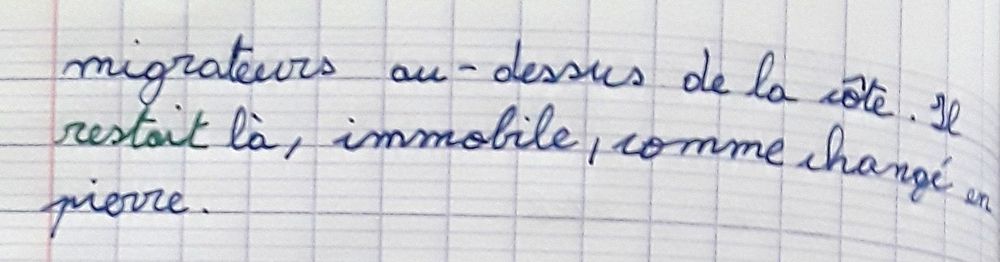 migrateurs au-dessus de la côte. Il
restait là, immobile, comme changé en
pierre.